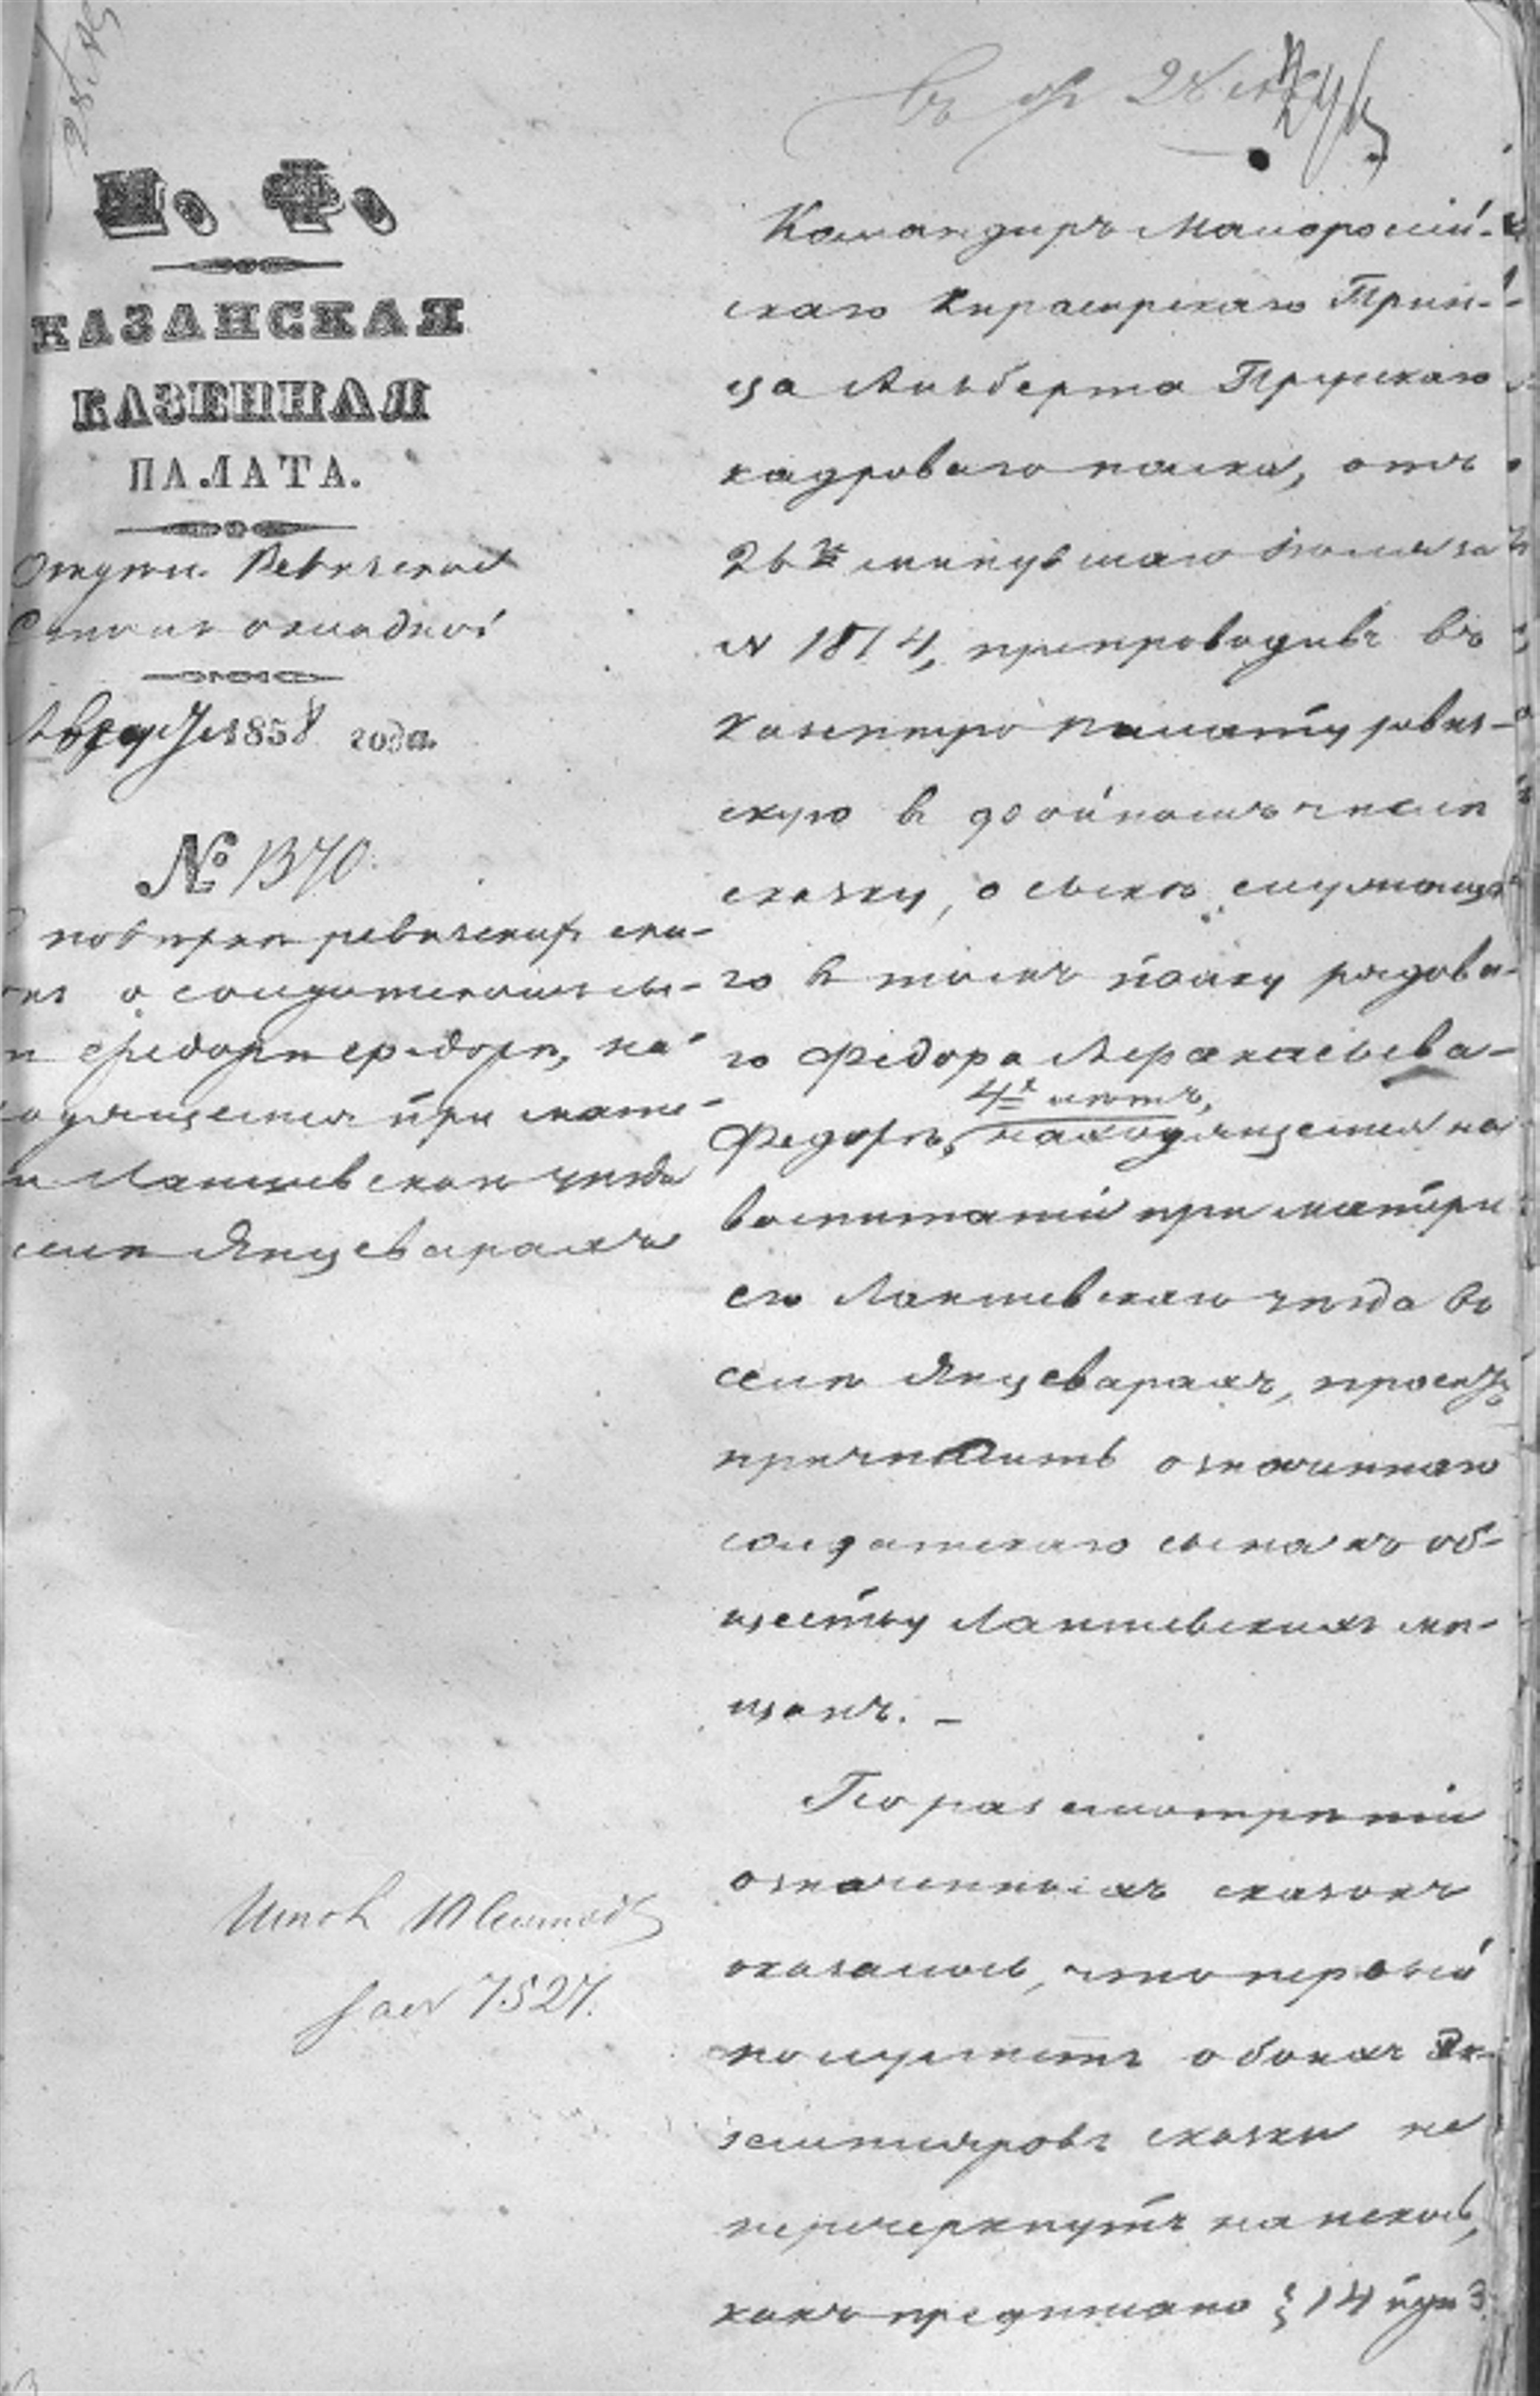 М. Ф.
КАЗАНСКАЯ
КАЗЕННАЯ
ПАЛАТА.
Ревизское
Августа 7 1858 года.
№ 1370.
повѣркѣ ревизскихъ ска-
о солдатскомъ сы-
Федорѣ Федорѣ, на-
одящемся при мате-
Лаишевскаго уѣзда
селѣ Янцеварахъ
Исполн
за № 7527.
Командиръ Малороссій-
скаго Кирасирскаго Прин-
ца Альберта Прусскаго
кадроваго полка, отъ
26го минувшаго Іюля за
№ 1874, препроводивъ въ
Казенную Палату ревиз-
скую въ двойномъ числѣ
сказку, о сынѣ служаща-
го въ томъ полку рядова-
го Федора Афанасьева –
4х лѣтъ,
Федорѣ, находящемся на
воспитаніи при матери
его Лаишевскаго уѣзда во
селѣ Янцеварахъ, проситъ
причислить означеннаго
солдатскаго сына къ об-
ществу Лаишевскихъ мѣ-
щанъ. –
По разсмотрѣніи
означенныхъ сказокъ
оказалось, что первый
полулистъ обоихъ Эк-
земпляровъ сказки не
перечеркнутъ на искось,
какъ предписано § 14 пун 3